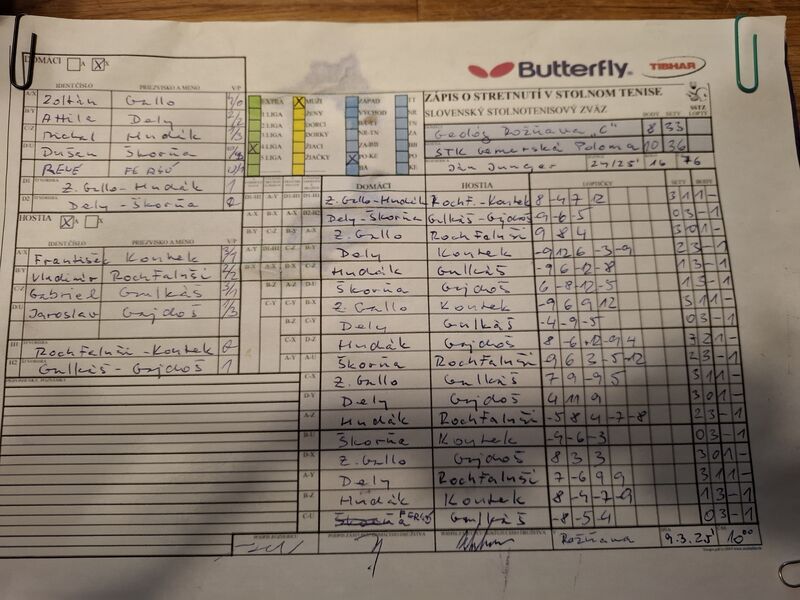 Butterfly TIBHAR
DOMÁCI A X
ZÁPIS O STRETNUTÍ V STOLNOM TENISE
SLOVENSKÝ STOLNOTENISOVÝ ZVÄZ
IDENT ČÍSLO PRIEZVISKO A MENO V/P
BODY SETY LOPTY
A/X Zoltán Gallo 4/0
B/Y Attila Dely 2/2
C/Z Michal Hudák
D/U Dušan Škorňa
RENÉ
D1 Z. Gallo-Hudák 1
D2 Dely-Škorňa 0
EXTRA MUŽI ZÁPAD TT
I LIGA ŽENY VÝCHOD
II LIGA DORCI
III LIGA DORKY NR-TN ZA
4 LIGA ŽIACI ZA-BB
5 LIGA ŽIAČKY PO-KE
BA KE
Geológ Rožňava "C" 8 33
STK Gemerská Poloma 10 36
Ján Junger 24/25' 16 76
HOSTIA X B
IDENT ČÍSLO PRIEZVISKO A MENO V/P
A/X František Kontek
B/Y Vladimír Rochfaluši 2/2
C/Z Gabriel Gulkáš 3/1
D/U Jaroslav Gajdoš 1/3
H1 Rochfaluši-Kontek 0
H2 Gulkáš-Gajdoš 1
DOMÁCI HOSTIA LOPTIČKY SETY BODY
Z. Gallo-Hudák Rochf.-Kontek 8 -4 7 12 3 1 1 -
Dely-Škorňa Gulkáš-Gajdoš -9 -6 -5 0 3 - 1
Z. Gallo Rochfaluši 9 8 4 3 0 1 -
Dely Kontek -9 12 6 -3 -9 2 3 - 1
Hudák Gulkáš -9 6 -12 -8 1 3 - 1
Škorňa Gajdoš 6 -8 -12 -5 1 3 - 1
Z. Gallo Kontek -9 6 9 12 3 1 1 -
Dely Gulkáš -4 -9 -5 0 3 - 1
C-X D-Z Hudák Gajdoš 8 -6 -12 9 4 3 2 1 -
A-Y A-U Škorňa Rochfaluši 9 6 -3 -5 -12 2 3 - 1
C-X Z. Gallo Gulkáš 7 9 -9 5 3 1 1 -
D-Y Dely Gajdoš 4 11 9 3 0 1 -
A-Z Hudák Rochfaluši -5 8 4 -7 -8 2 3 - 1
B-U Škorňa Kontek -9 -6 -3 0 3 - 1
D-X Z. Gallo Gajdoš 8 3 3 3 0 1 -
A-Y Dely Rochfaluši 7 -6 9 9 3 1 1 -
B-Z Hudák Kontek 8 -4 -7 -9 1 3 - 1
C-U Gulkáš -8 -5 -4 0 3 - 1
Rožňava 9.3.25' 10 00